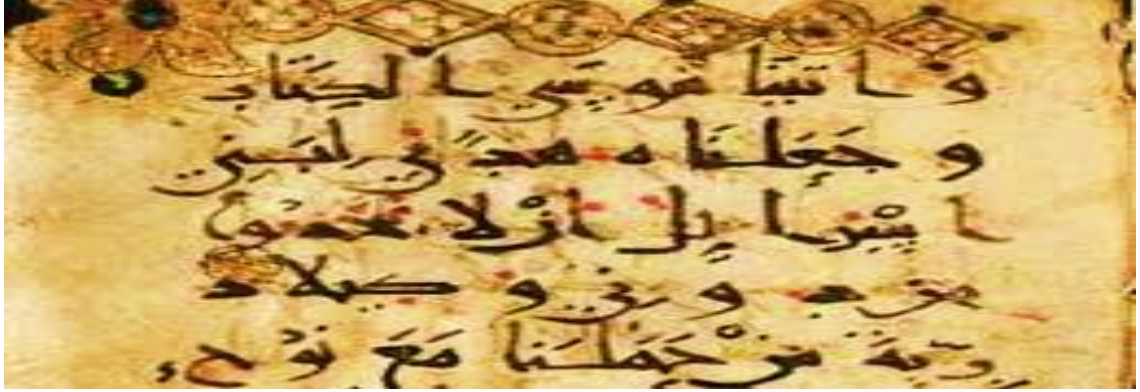 و ا تينا موسى ا لكتاب
و جعلنا ه هدًى لبنى
ا سْرا يل ا نْ لا تتخذوا
من د و نى و كيلا ذ
رّية منْ حملنا مع نو ح